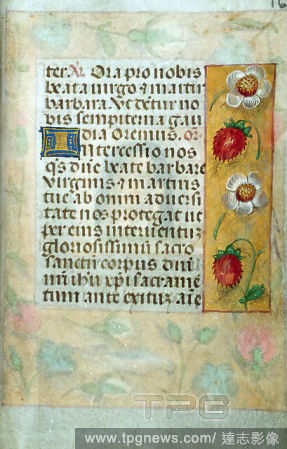 16
ter. ꝶ. Ora pro nobis
beata uirgo ⁊ martir
barbara. Vt detur no
bis sempiterna gau
dia Oremus. or̄
Intercessio nos
qs dn̄e beate barbare
Virginis ⁊ martiris
tue ab omni aduersi
tate nos protegat ut
per eius interuentū
gloriosissimū sacro
sanctū corpus dn̄i
nr̄i ih̄u xp̄i sacramē
tum ante exitū
TPG
www.tpgnews.com/ 達志影像